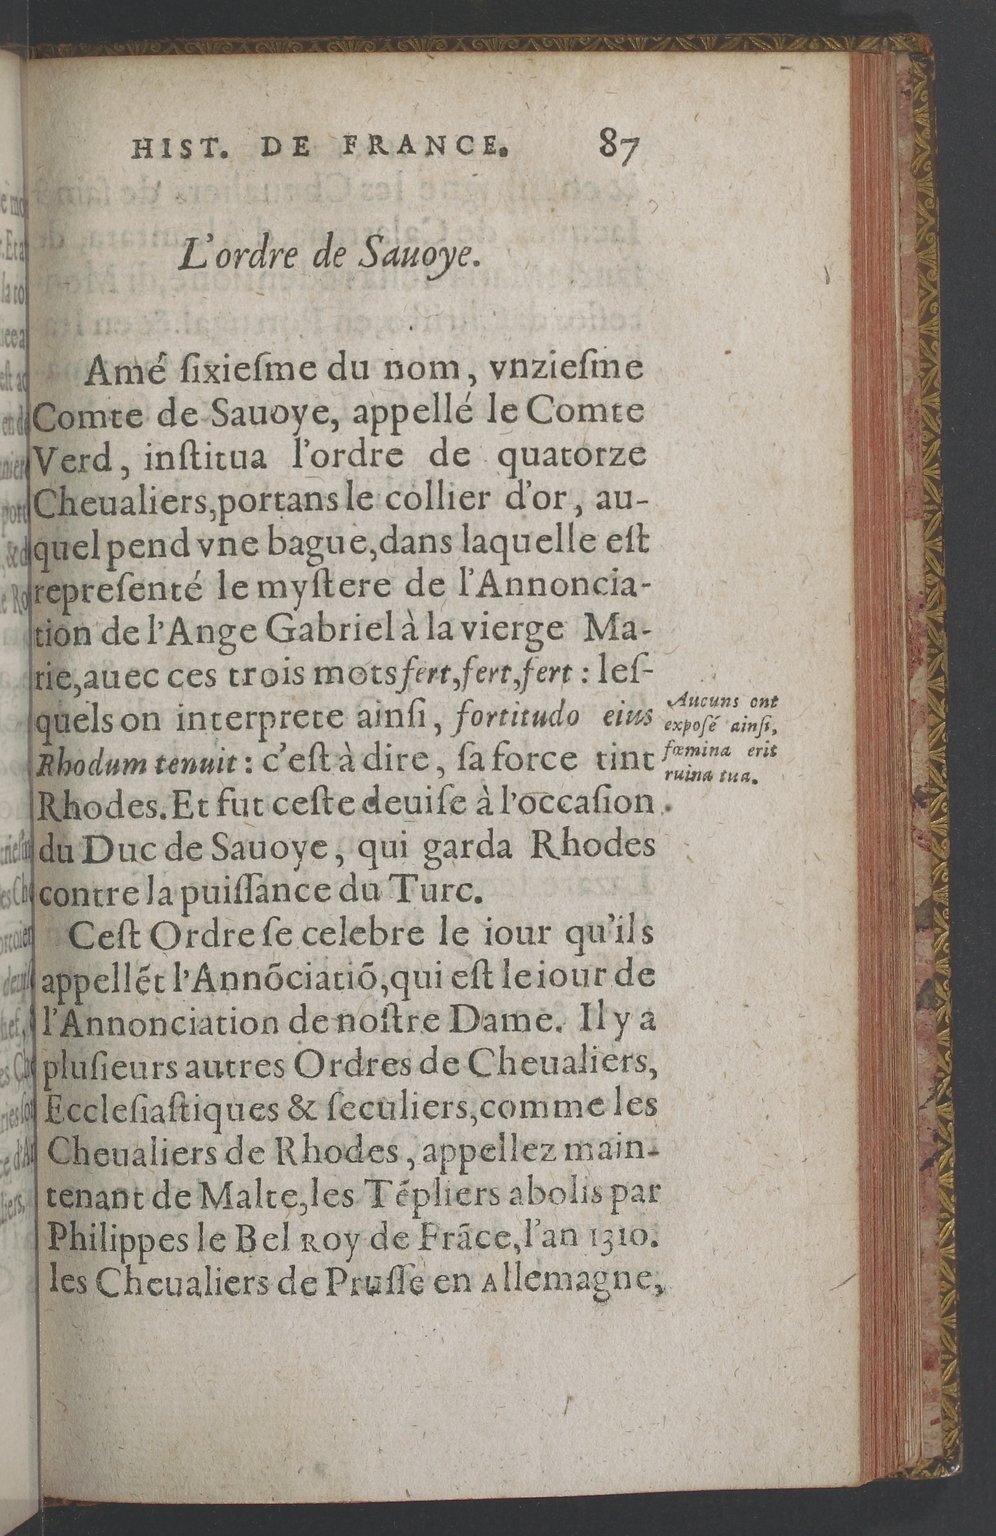 HIST. DE FRANCE. 87
L'ordre de Sauoye.
Amé ſixieſme du nom, vnzieſme
Comte de Sauoye, appellé le Comte
Verd, inſtitua l'ordre de quatorze
Cheualiers,portans le collier d'or, au-
quel pend vne bague,dans laquelle eſt
repreſenté le myſtere de l'Annoncia-
tion de l'Ange Gabriel à la vierge Ma-
rie,auec ces trois mots fert,fert,fert : leſ-
quels on interprete ainſi, fortitudo eius
Rhodum tenuit : c'eſt à dire, ſa force tint
Rhodes. Et fut ceſte deuiſe à l'occaſion
du Duc de Sauoye, qui garda Rhodes
contre la puiſſance du Turc.
Ceſt Ordre ſe celebre le iour qu'ils
appellẽt l'Annõciatiõ,qui eſt le iour de
l'Annonciation de noſtre Dame. Il y a
pluſieurs autres Ordres de Cheualiers,
Eccleſiaſtiques & ſeculiers,comme les
Cheualiers de Rhodes, appellez main-
tenant de Malte,les Tẽpliers abolis par
Philippes le Bel Roy de Frãce,l'an 1310.
les Cheualiers de Pruſſe en Allemagne,
Aucuns ont
expoſé ainſi,
fœmina erit
ruina tua.